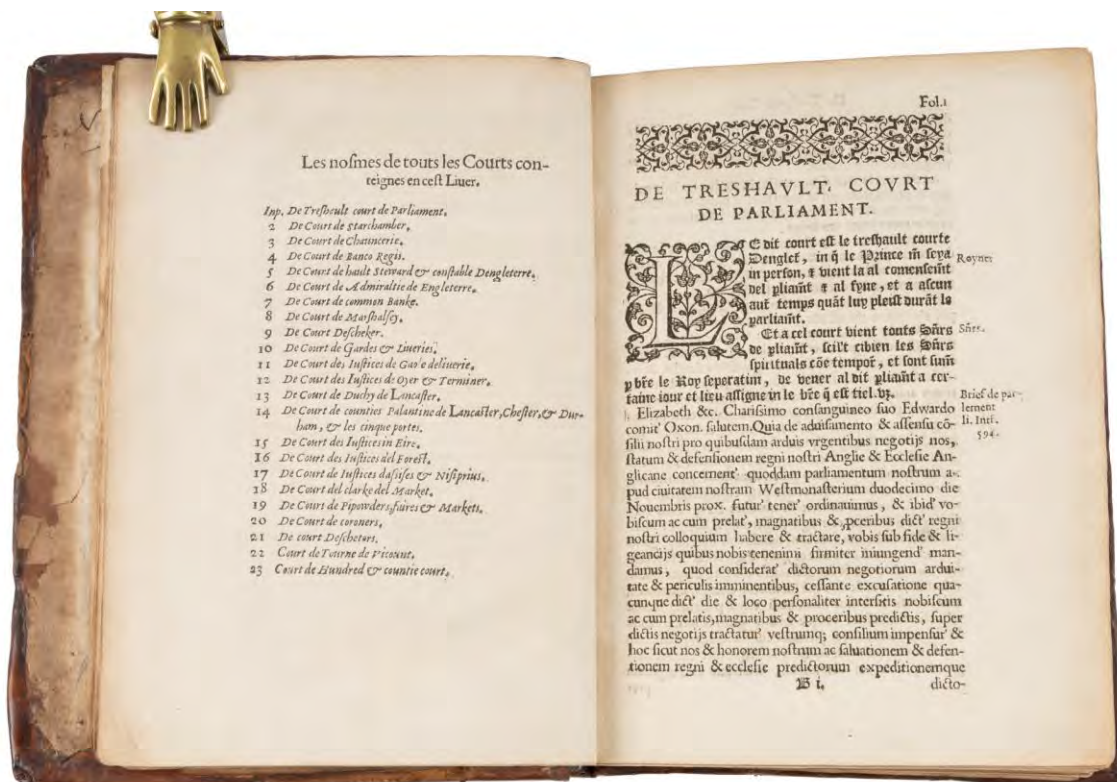 Les nosmes de touts les Courts con-
teignes en cest Liuer.
Inp. De Treshcult court de Parliament.
2 De Court de Starchamber.
3 De Court de Chauncerie.
4 De Court de Banco Regis.
5 De Court de hault Steward & constable Dengleterre.
6 De Court de Admiraltie de Engleterre.
7 De Court de common Banke.
8 De Court de Marshalsey.
9 De Court Descheker.
10 De Court de Gardes & Liueries.
11 De Court des Iustices de Gaole deliuerie.
12 De Court des Iustices de Oyer & Terminer.
13 De Court de Duchy de Lancaster.
14 De Court de counties Palantine de Lancaster, Chester, & Dur-
ham, & les cinque portes.
15 De Court des Iustices in Eire.
16 De Court des Iustices del Forest.
17 De Court de Iustices dassises & Nisiprius.
18 De Court del clarke del Market.
19 De Court de Pipowders, faires & Markets.
20 De Court de coroners.
21 De court Deschetors.
22 Court de Tourne de Vicount.
23 Court de Hundred & countie court.
Fol.1
DE TRESHAVLT. COVRT
DE PARLIAMENT.
LE dit court est le treshault courte
Denglet, in q̃ le Prince m̃ seya
in person, & vient la al comensem̃t
del pliam̃t & al fyne, et a ascun
aut̃ temps quãt luy pleist durãt le
parliam̃t.
Et a cel court vient touts Sñrs
de pliam̃t, scil't cibien les Sñrs
spirituals cõe tempor̃, et sont sum̃
p br̃e le Roy seperatim, de vener al dit pliam̃t a cer-
taine iour et lieu assigne in le br̃e q̃ est tiel. vz.
Roynes
Sñrs.
Elizabeth &c. Charissimo consanguineo suo Edwardo
comit' Oxon. salutem. Quia de aduisamento & assensu cõ-
silij nostri pro quibusdam arduis vrgentibus negotijs nos,
statum & defensionem regni nostri Anglie & Ecclesie An-
glicane concernent' quoddam parliamentum nostrum a-
pud ciuitatem nostram Westmonasterium duodecimo die
Nouembris prox. futur' tener' ordinauimus, & ibid' vo-
biscum ac cum prelat', magnatibus & pceribus dict' regni
nostri colloquium habere & tractare, vobis sub fide & li-
geancijs quibus nobis tenemini firmiter iniungend' man-
damus, quod considerat' dictorum negotiorum ardui-
tate & periculis imminentibus, cessante excusatione qua-
cunque dict' die & loco personaliter intersitis nobiscum
ac cum prelatis, magnatibus & proceribus predictis, super
dictis negotijs tractatur' vestrumq; consilium impensur' &
hoc sicut nos & honorem nostrum ac saluationem & defen-
tionem regni & ecclesie predictorum expeditionemque
Brief de par-
lement
li. Int.
594.
B i.
dicto-